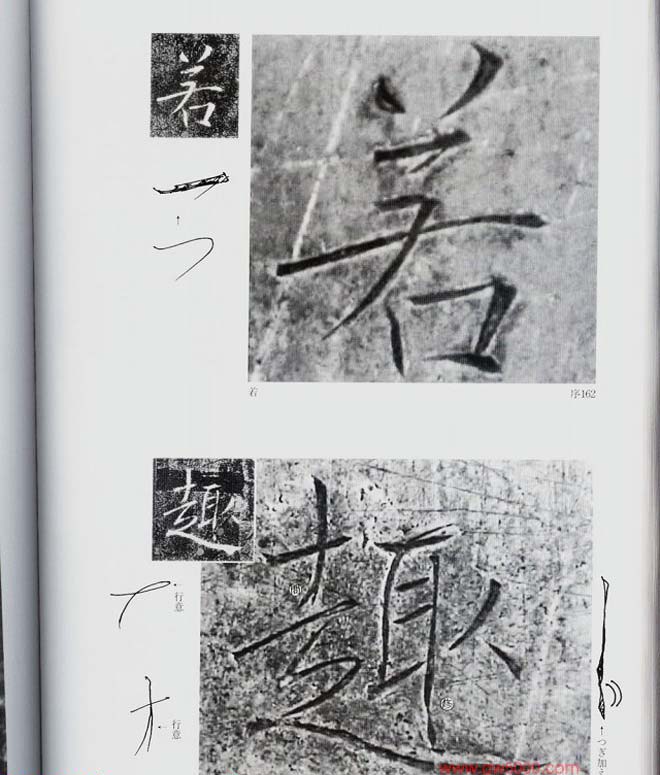 若
若
若
序162
趣
趣
行意
行意
つぎ加